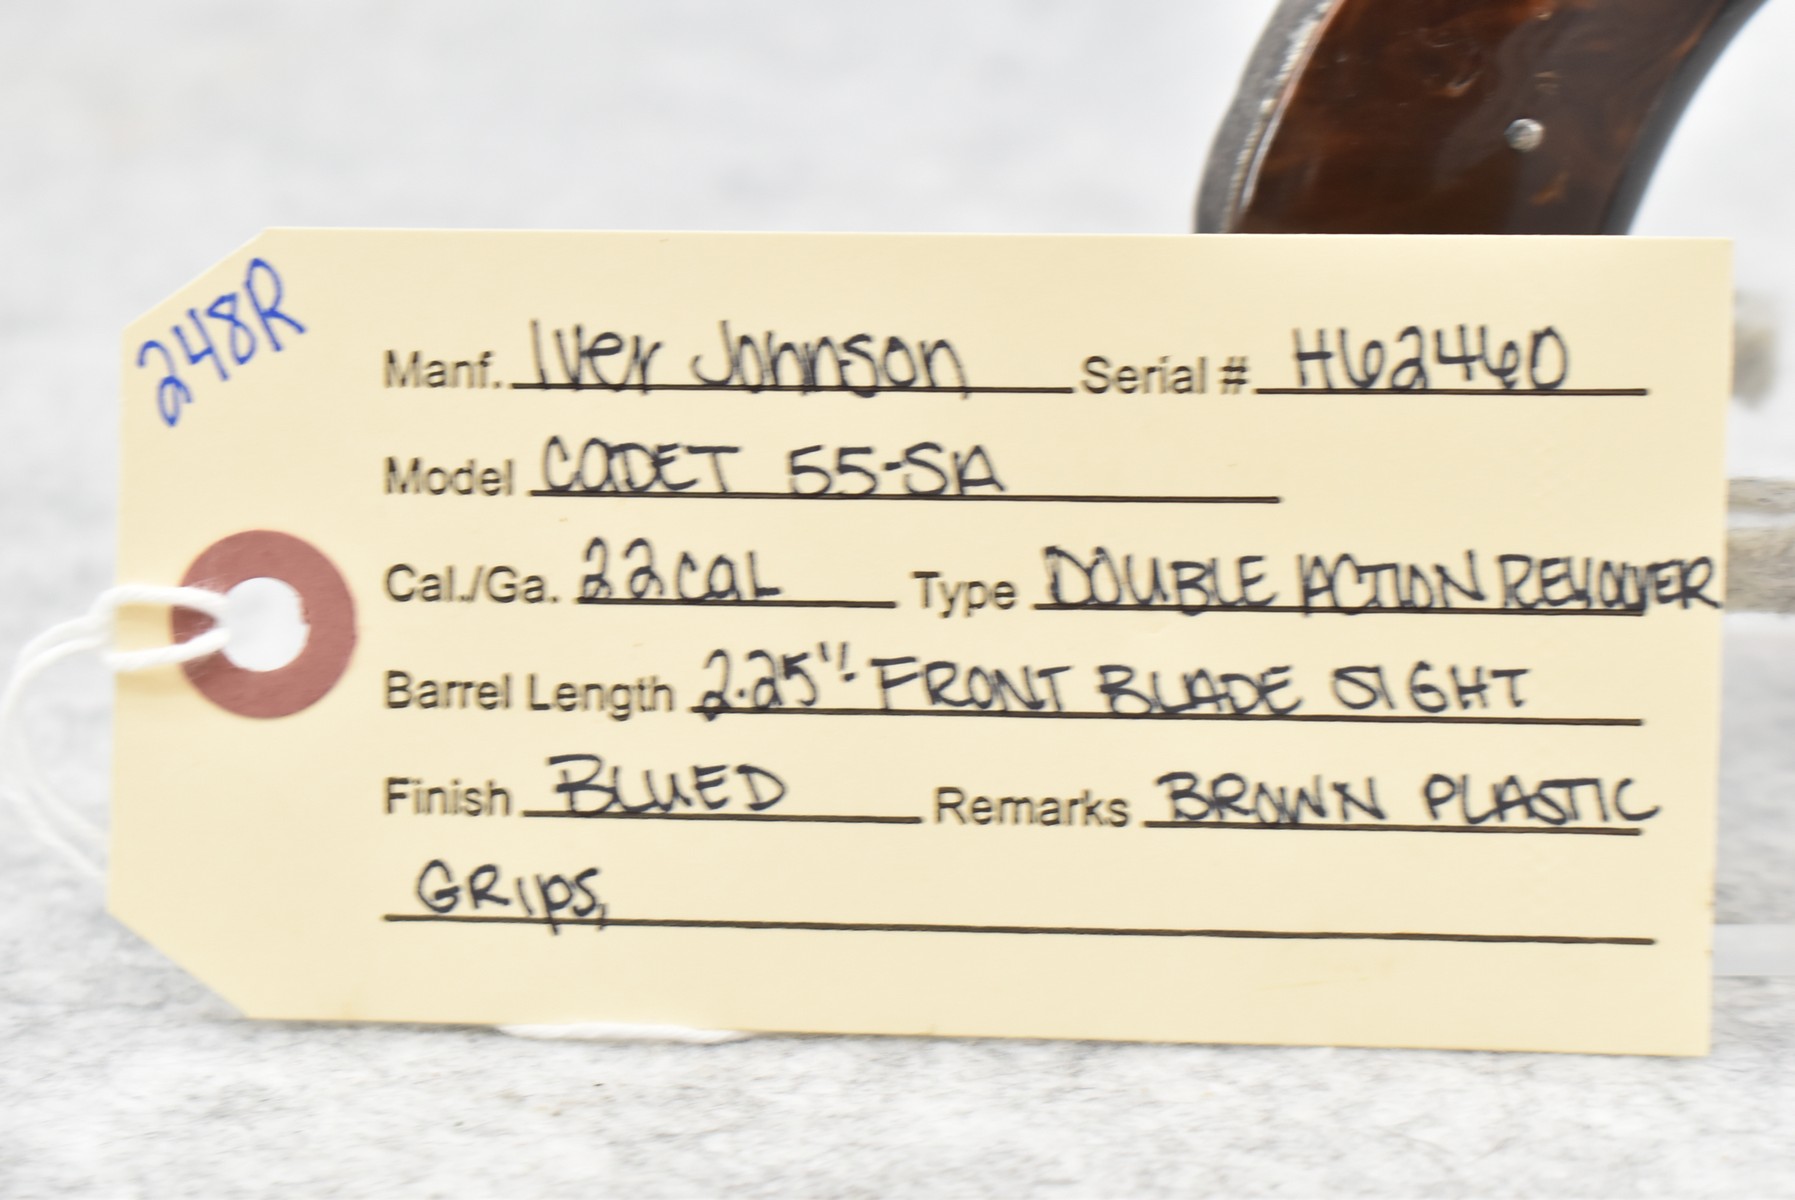 248R
Manf. Iver Johnson Serial # H62460
Model CADET 55-SA
Cal./Ga. 22 CAL Type DOUBLE ACTION REVOLVER
Barrel Length 2.25" FRONT BLADE SIGHT
Finish BLUED Remarks BROWN PLASTIC
GRIPS,